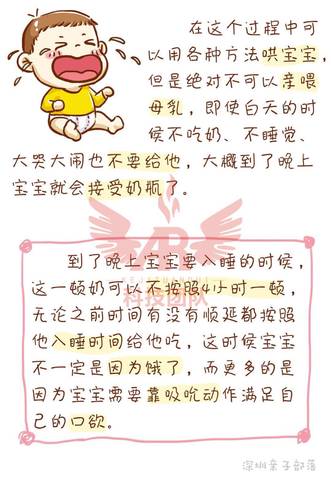 在这个过程中可
以用各种方法哄宝宝,
但是绝对不可以亲喂
母乳,即使白天的时
候不吃奶、不睡觉、
大哭大闹也不要给他,大概到了晚上
宝宝就会接受奶瓶了。
AR
科技团队
到了晚上宝宝要入睡的时候,
这一顿奶可以不按照4小时一顿,
无论之前时间有没有顺延都按照
他入睡时间给他吃,这时候宝宝
不一定是因为饿了,而更多的是
因为宝宝需要靠吸吮动作满足自
己的口欲。
深圳亲子部落